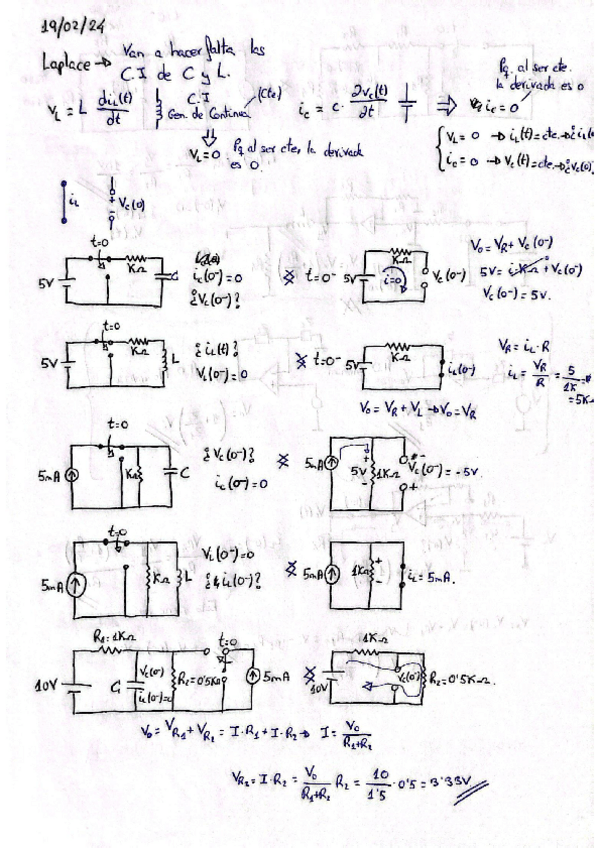 19/02/24
Laplace → Van a hacer falta las
C.I de C y L.
Pq al ser cte.
la derivada es 0
V_L = L diL(t)/dt
C.I
Gen. de Continua (cte)
i_C = C · ∂V_C(t)/∂t ⇒ i_C = 0
V_L = 0 Pq al ser cte, la derivada
es 0.
V_L = 0 → i_L(t) = cte. → ¿i_L(0
i_C = 0 → V_C(t) = cte. → ¿V_C(0)
i_L + V_C(0) -
t=0 KΩ 5V C
i_C(0-) = 0
¿V_C(0-)?
t=0- 5V KΩ i=0 V_C(0-)
V_0 = V_R + V_C(0-)
5V = i·KΩ + V_C(0-)
V_C(0-) = 5V.
t=0 KΩ 5V L
¿i_L(t)?
V_L(0-) = 0
t=0- 5V KΩ i_L(0-)
V_R = i_L · R
i_L = V_R/R = 5/1K =
= 5
V_0 = V_R + V_L → V_0 = V_R
t=0 5mA KΩ C
¿V_C(0-)?
i_C(0-) = 0
5mA 5V + - 1KΩ - + V_C(0-) = -5V.
t=0 5mA KΩ L
V_L(0-) = 0
¿i_L(0-)?
5mA 1KΩ + - i_L = 5mA.
R_1 = 1KΩ t=0 10V C V_C(0-) i_C(0-)=0 R_2 = 0'5KΩ 5mA
1KΩ 10V V_C(0-) R_2 = 0'5KΩ.
V_0 = V_R1 + V_R2 = I·R_1 + I·R_2 → I = V_0/(R_1+R_2)
V_R2 = I·R_2 = V_0/(R_1+R_2) R_2 = 10/1'5 · 0'5 = 3'33V